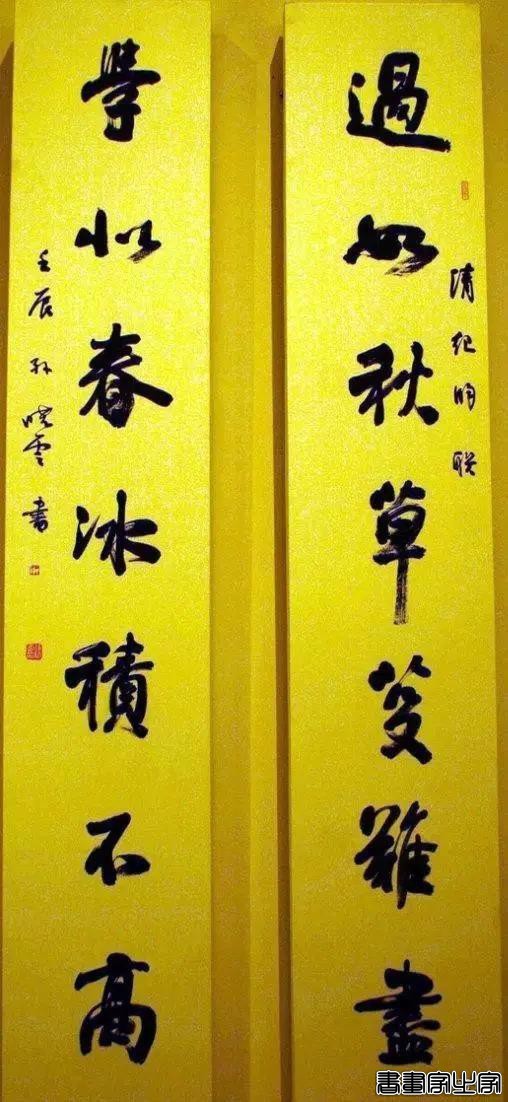 過如秋草芟難盡
清纪昀联
學似春冰積不高
壬辰孙晓云书
書畫家之家